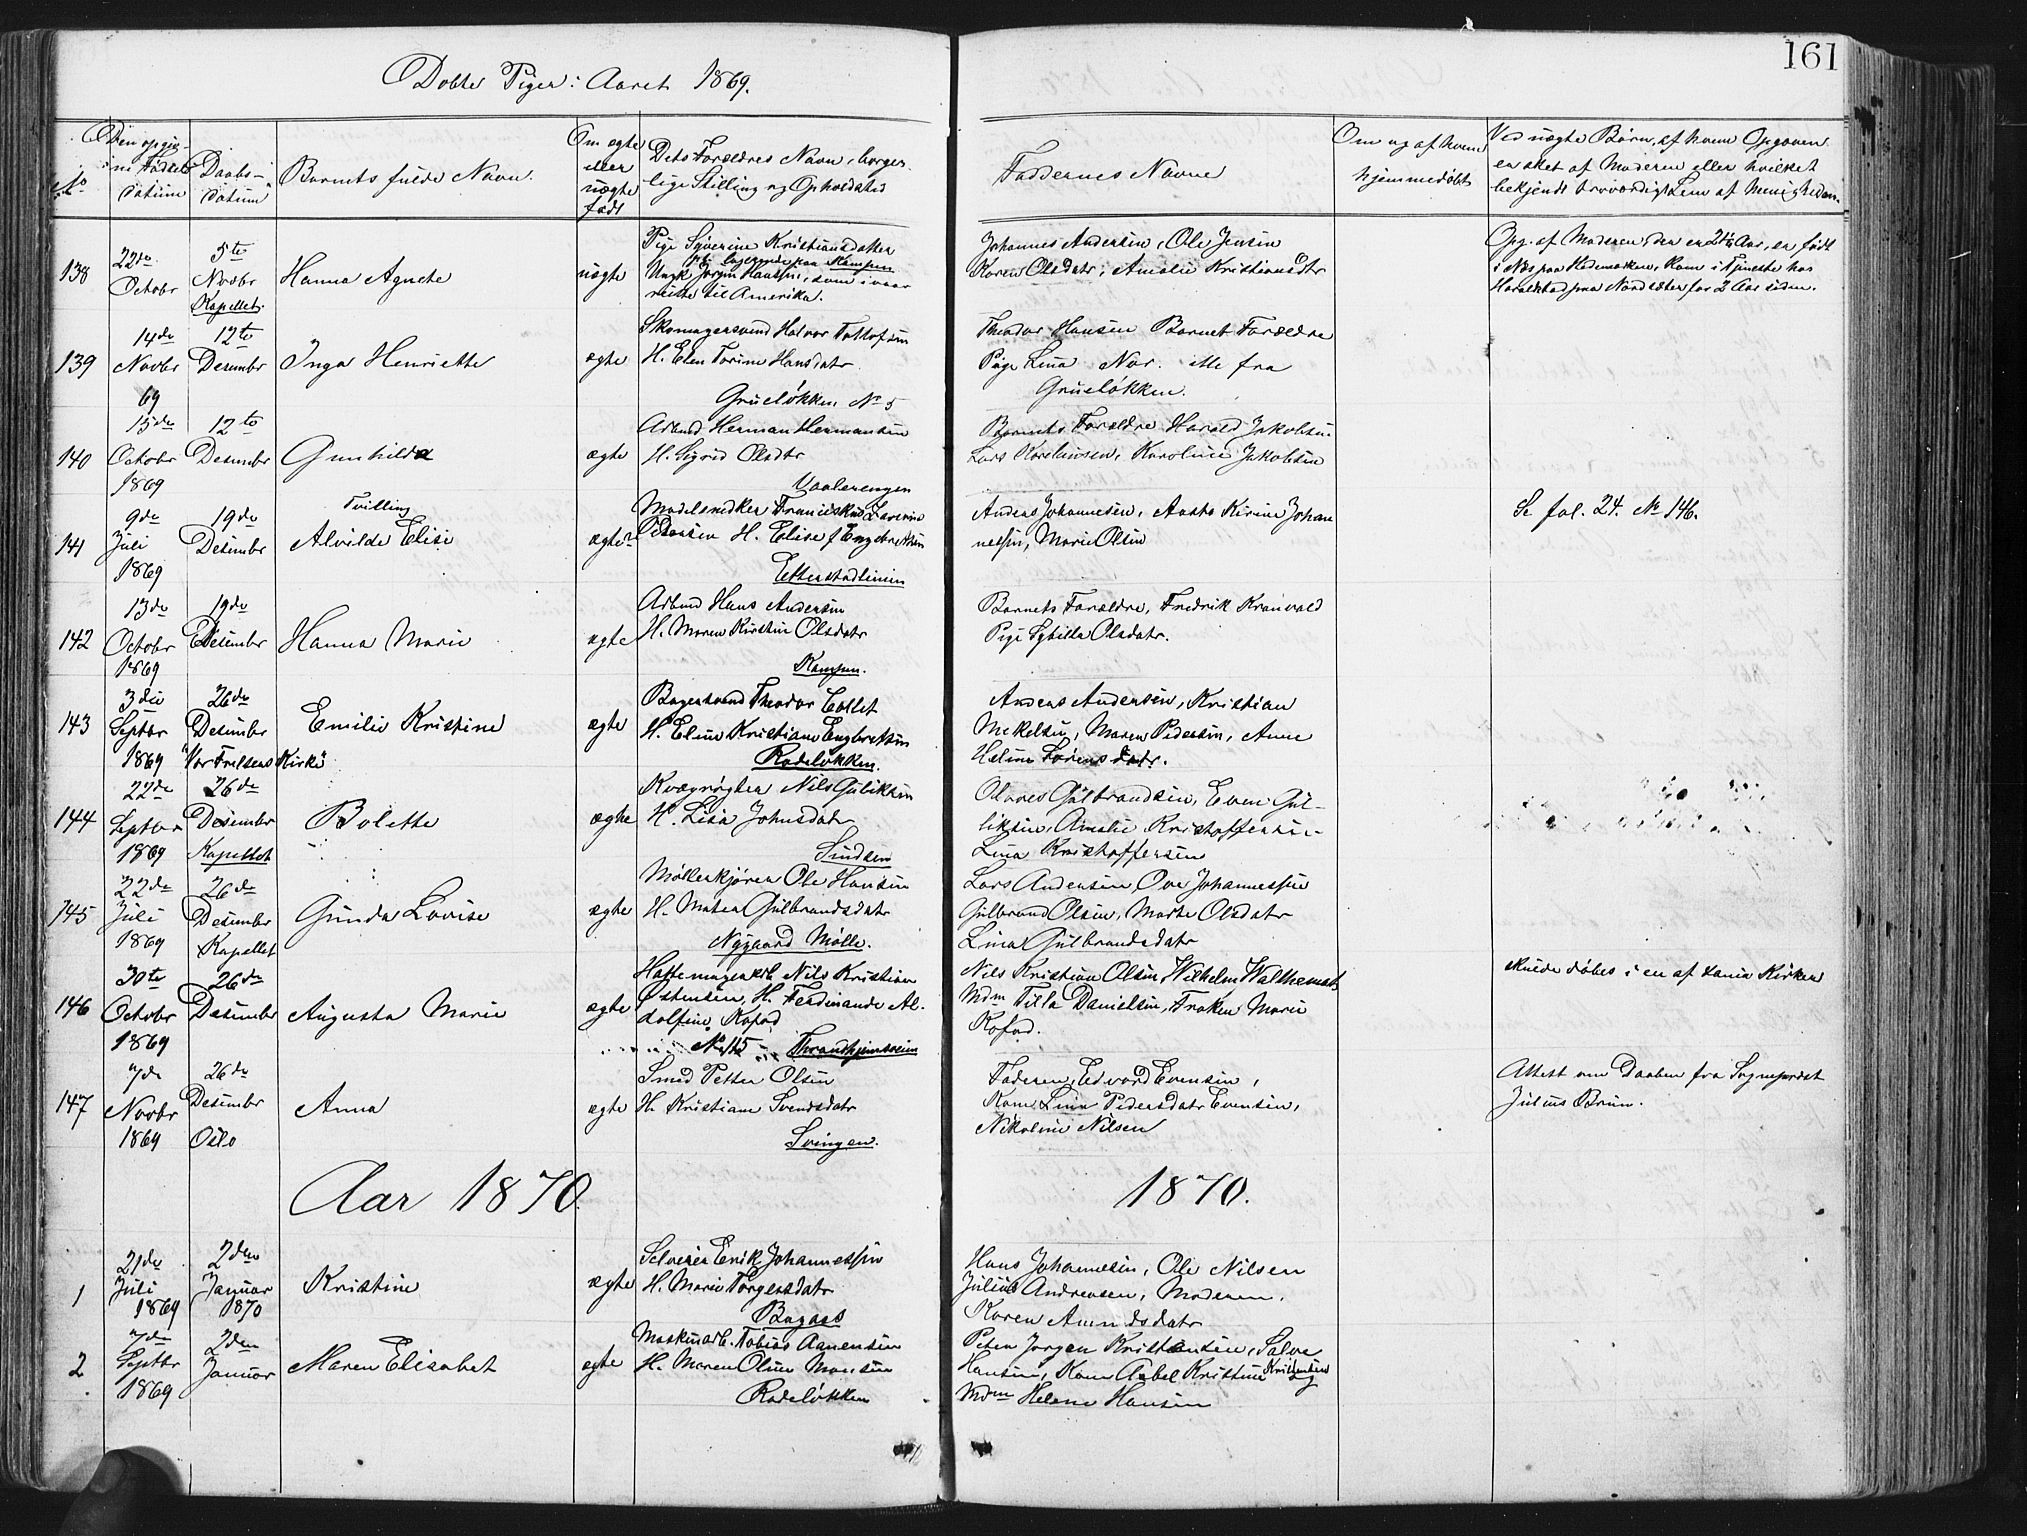 161
Døbte Piger i Aaret 1869.
No
Den opgiv-
ne Fødsels
Datum
Daabs-
Datum
Barnets fulde Navn.
Om ægte
eller
uægte
født
Dets Forældres Navn, borger-
lige Stilling og Opholdsted
Faddernes Navne
Om og af hvem
hjemmedøbt
Ved uægte Børn, af hvem Opgaven
er sket af Moderen eller hvilket
bekjendt troværdigt Lem af Menigheden.
138
22de
Octobr
5te
Novbr
Kapellet
Hanna Agnete
uægte
Pige Syverine Kristiansdatter
p.t. logerende paa Kampen
Ungk. Jørgen Hansen, som i vaar
reiste til Amerika.
Johannes Andersen, Ole Jensen
Karen Olsdatr, Amalie Kristiansdtr
Opg. af Moderen, der er 21½ Aar, er født
i Næs paa Hedemarken, kom i Tjeneste hos
Haraldstad paa Nordsæter for 2 Aar siden.
139
14de
Novbr
69
12te
Desembr
Inga Henriette
ægte
Skomagersvend Halvor Tollofsen
H. Elen Torine Hansdatr
Grueløkken No 5
Theodor Hansen Barnet Forældre
Pige Lina Nor. alle fra
Grueløkken.
140
15de
Octobr
1869
12te
Desembr
Gunhilda
ægte
Arbmd Herman Hermansen
H. Sigrid Olsdtr
Vaalerengen
Barnets Forældre Harald Jakobsen
Lars Karelinsen, Karoline Jakobsen
141
9de
Juli
1869
19de
Desembr
Tvilling
Alvilde Elise
ægte
Modelsnedker Franciskus Zaverius
Petersen H. Elise f. Engebrethsen
Etterstadlinien
Anders Johannesen, Aasta Kirine Johan
nessen, Marie Olsen
Se fol. 24. No 146.
142
13de
Octobr
1869
19de
Desembr
Hanna Marie
ægte
Arbmd Hans Andersen
H. Maren Kirstine Olsdatr
Kampen.
Barnets Forældre, Fredrik Kranvald
Pige Sybilla Olsdatr.
143
3die
Septbr
1869
26de
Desembr
Vor Frelsers Kirke
Emilie Kristine
ægte
Bagersvend Theodor Collet
H. Eline Kristiane Engbretsen
Rodeløkken.
Anders Andersen, Kristian
Mekelsen, Maren Pedersen, Anne
Heline Sørensdatr.
144
22de
Septbr
1869
26de
Desember
Kapellet
Bolette
ægte
Kvægrøgter Nils Guliksen
H. Lisa Johnsdatr
Sinsen
Olaves Gulbrandsen, Even Gul-
liksen, Amalie Kristoffersen
Lina Kristoffersen
145
22de
Juli
1869
26de
Desember
Kapellet
Gunda Lovise
ægte
Møllerkjører Ole Hansen
H. Matea Gulbrandsdatr
Nygaard Mølle.
Lars Andersen, Ove Johannessen
Gulbrand Olsen, Marte Olsdatr
Lina Gulbrandsdatr
146
30te
Octobr
1869
26de
Desember
Augusta Marie
ægte
Hattemagerarb. Nils Kristian
Østensen, H. Ferdinande Al-
dolfine Kofod
No 115 Throndhjemsveien
Nils Kristian Olsen, Wilhelm Walthemats
Mdm Tilla Danielsen, Frøken Marie
Kofod.
skulde døbes i en af Byens Kirker
147
7de
Novbr
1869
26de
Desembr
Oslo
Anna
ægte
Smed Petter Olsen
H. Kristiane Svendsdatr
Svingen.
Faderen, Edvard Evensen,
Kone Lina Pedersdatr Evensen,
Nikoline Nilsen
Attest om Daaben fra Sognepræst
Julius Bruun.
Aar 1870
1870.
1
21de
Juli
1869
2den
Januar
1870
Kristine
ægte
Selveier Erik Johannessen
H. Marie Torgersdatr
Bagaas
Hans Johannesen, Ole Nilsen
Julius Andreasen, Moderen,
Karen Amundsdatr
2
7de
Septbr
1869
2den
Januar
Maren Elisabet
ægte
Maskinarb. Tobias Aanensen
H. Maren Oline Monsen
Rodeløkken
Peter Jørgen Kristensen, Salve
Hansen, Kone Aabel Kristine Kristensen
Mdm Helene Hansen